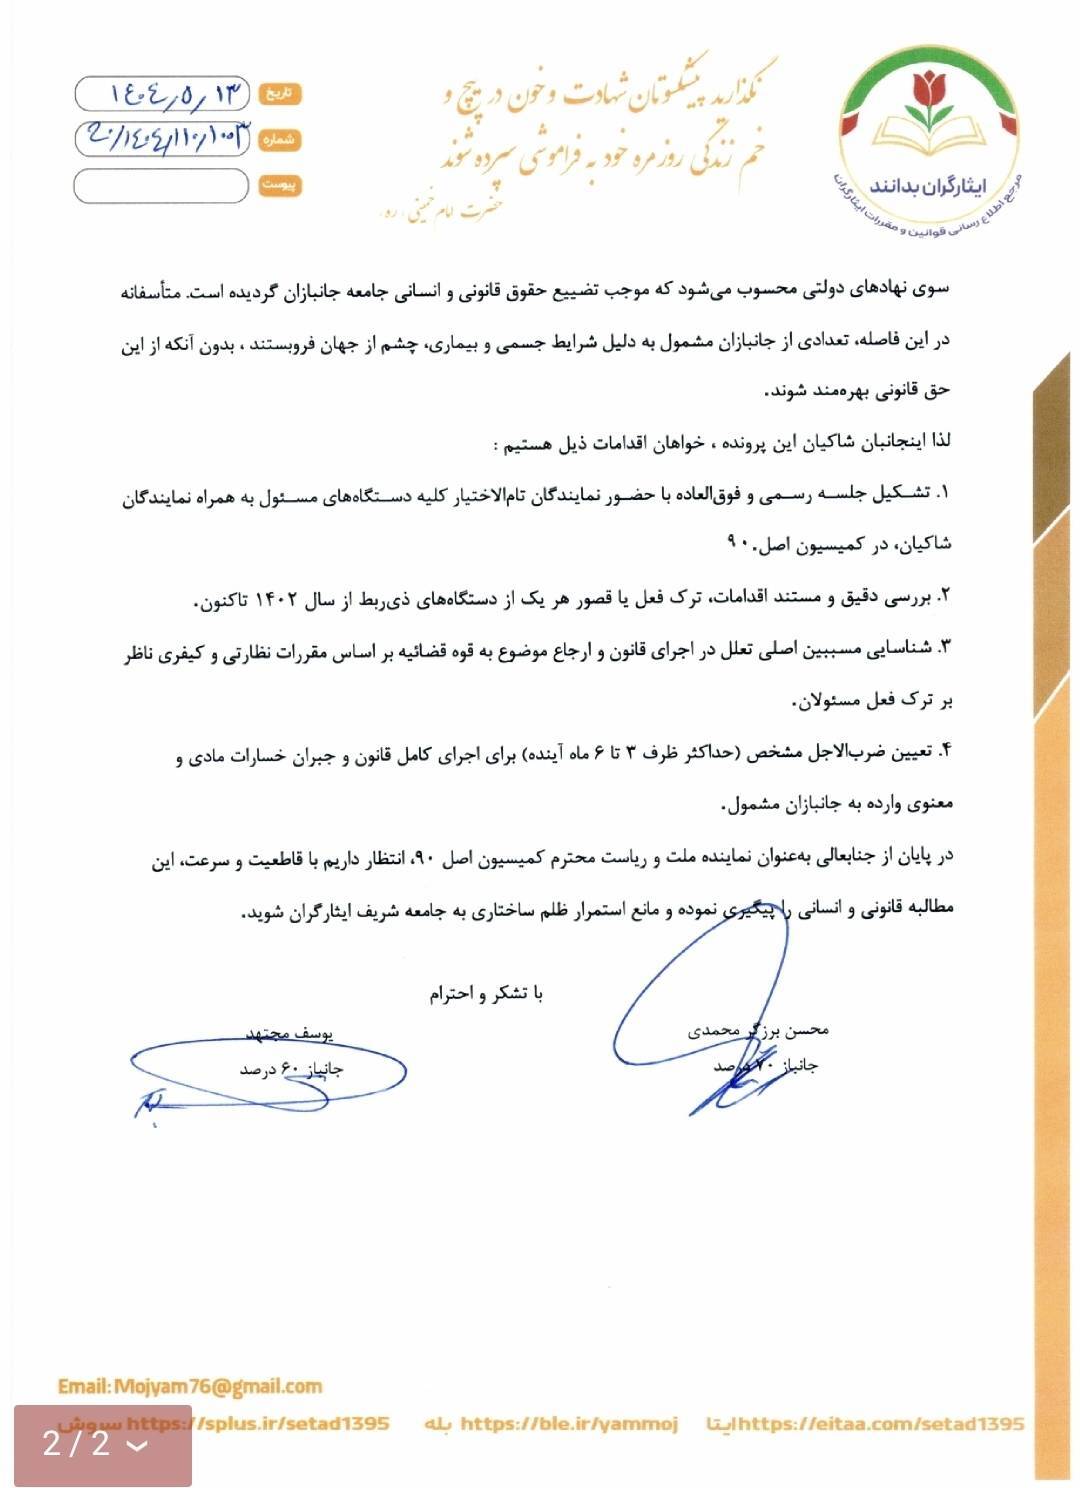 نگذارید پیشکسوتان شهادت و خون در پیچ و
خم زندگی روزمره خود به فراموشی سپرده شوند
حضرت امام خمینی (ره)
تاریخ ۱۴۰۴٫۵٫۱۳
شماره
پیوست
ایثارگران بدانند
مرجع اطلاع رسانی قوانین و مقررات ایثارگران
سوی نهادهای دولتی محسوب می‌شود که موجب تضییع حقوق قانونی و انسانی جامعه جانبازان گردیده است. متأسفانه
در این فاصله، تعدادی از جانبازان مشمول به دلیل شرایط جسمی و بیماری، چشم از جهان فروبستند ، بدون آنکه از این
حق قانونی بهره‌مند شوند.
لذا اینجانبان شاکیان این پرونده ، خواهان اقدامات ذیل هستیم :
۱. تشکیل جلسه رسمی و فوق‌العاده با حضور نمایندگان تام‌الاختیار کلیه دستگاه‌های مسئول به همراه نمایندگان
شاکیان، در کمیسیون اصل ۹۰.
۲. بررسی دقیق و مستند اقدامات، ترک فعل یا قصور هر یک از دستگاه‌های ذی‌ربط از سال ۱۴۰۲ تاکنون.
۳. شناسایی مسببین اصلی تعلل در اجرای قانون و ارجاع موضوع به قوه قضائیه بر اساس مقررات نظارتی و کیفری ناظر
بر ترک فعل مسئولان.
۴. تعیین ضرب‌الاجل مشخص (حداکثر ظرف ۳ تا ۶ ماه آینده) برای اجرای کامل قانون و جبران خسارات مادی و
معنوی وارده به جانبازان مشمول.
در پایان از جنابعالی به‌عنوان نماینده ملت و ریاست محترم کمیسیون اصل ۹۰، انتظار داریم با قاطعیت و سرعت، این
مطالبه قانونی و انسانی را پیگیری نموده و مانع استمرار ظلم ساختاری به جامعه شریف ایثارگران شوید.
با تشکر و احترام
محسن برزگر محمدی
جانباز ۷۰ درصد
یوسف مجتهد
جانباز ۶۰ درصد
Email: Mojyam76@gmail.com
ایتا https://eitaa.com/setad1395 بله https://ble.ir/yammoj سروش https://splus.ir/setad1395
2 / 2